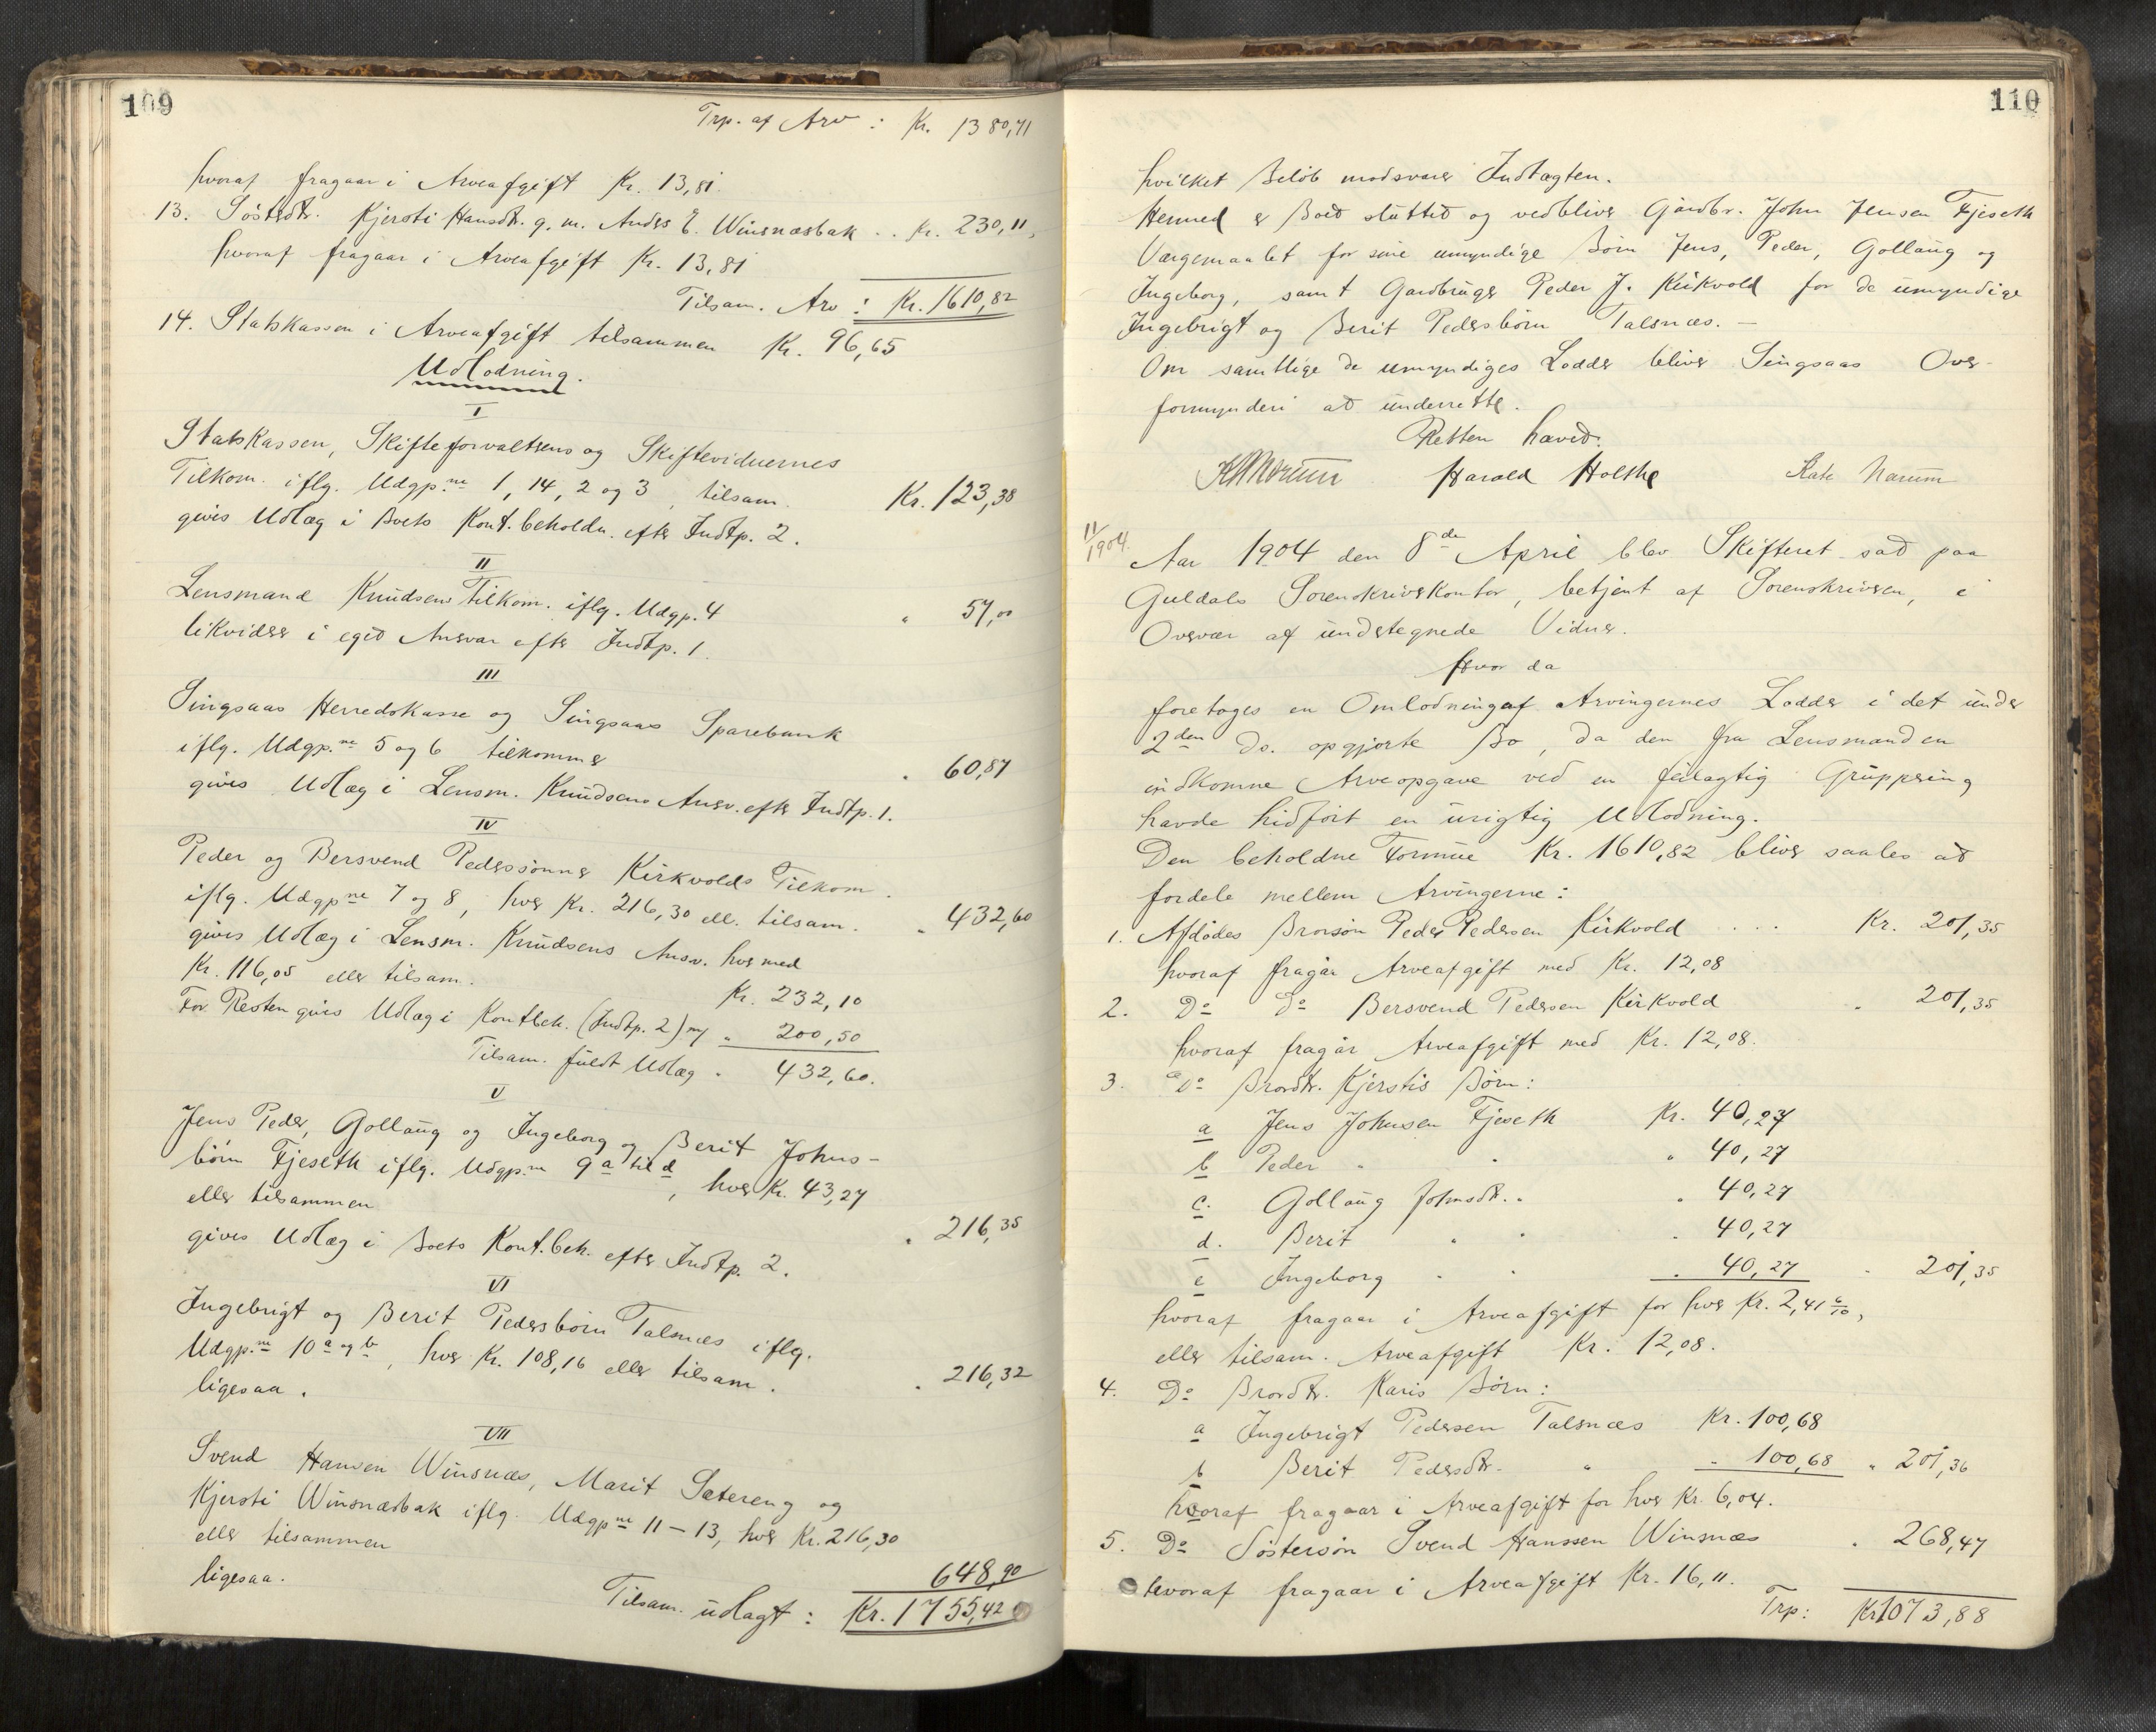 109
Trp. af Arv : Kr. 1380,71
hvoraf fragaar i Arveafgift Kr. 13,81.
13. Søsterdtr. Kjersti Hansdtr. g. m. Anders E. Winsnæsbak .. Kr. 230,11,
hvoraf fragaar i Arveafgift Kr. 13,81
Tilsam. Arv : Kr. 1610,82
14. Statskassen i Arveafgift tilsammen Kr. 96,65
Udlodning.
I
Statskassen, Skifteforvalterens og Skiftevidnernes
Tilkom. iflg. Udgp.ne 1, 14, 2 og 3 tilsam. Kr. 123,38
gives Udlæg i Boets Kont.beholdn. efter Indtp. 2.
II
Lensmand Knudsens Tilkom. iflg. Udgp. 4 " 57,00
likvideres i eget Ansvar efter Indtp. 1.
III
Singsaas Herredskasse og Singsaas Sparebank
iflg. Udgp.ne 5 og 6 tilkommer " 60,87
gives Udlæg i Lensm. Knudsens Ansv. efter Indtp. 1.
IV
Peder og Bersvend Pederssønner Kirkvolds Tilkom.
iflg. Udgp.ne 7 og 8, hver Kr. 216,30 ell. tilsam. " 432,60
gives Udlæg i Lensm. Knudsens Ansv. hver med
Kr. 116,05 eller tilsam. Kr. 232,10
For Resten gives Udlæg i Kontbeh. (Indtp. 2) m/ " 200,50
Tilsam. fuldt Udlæg " 432,60.
V
Jens Peder, Gollaug og Ingeborg og Berit Johns-
børn Fjeseth iflg. Udgp.ne 9 a til d, hver Kr. 43,27
eller tilsammen " 216,35
gives Udlæg i Boets Kont.beh. efter Indtp. 2.
VI
Ingebrigt og Berit Pedersbørn Talsnæs iflg.
Udgp.ne 10 a og b, hver Kr. 108,16 eller tilsam. " 216,32
ligesaa.
VII
Svend Hansen Winsnæs, Marit Sætereng og
Kjersti Winsnæsbak iflg. Udgp.ne 11 – 13, hver Kr. 216,30
eller tilsammen 648,90
ligesaa.
Tilsam. udlagt : Kr. 1755,42
110
hvilket Beløb modsvarer Indtægten.
Hermed er Boet sluttet og vedbliver Gårdbr. John Jensen Fjeseth
Værgemaalet for sine umyndige Børn Jens, Peder, Gollaug og
Ingeborg, samt Gardbruger Peder J. Kirkvold for de umyndige
Ingebrigt og Berit Pedersbørn Talsnæs. –
Om samtlige de umyndiges Lodder bliver Singsaas Over-
formynderi at underrette.
Retten hævet.
Harald Holthe Kate Narum
11/1904.
Aar 1904 den 8de April blev Skifteret sat paa
Guldals Sorenskriverkontor, betjent af Sorenskriveren, i
Overvær af undertegnede Vidner.
Hvor da
foretoges en Omlodning af Arvingernes Lodder i det under
2den Ds. opgjorte Bo, da den fra Lensmanden
indkomne Arveopgave ved en feilagtig Gruppering
havde hidført en urigtig Udlodning.
Den beholdne Formue Kr. 1610,82 bliver saales at
fordele mellem Arvingerne:
1. Afdødes Brorsøn Peder Pedersen Kirkvold .... Kr. 201,35
hvoraf fragår Arveafgift med Kr. 12,08
2. Do Do Bersvend Pedersen Kirkvold " 201,35
hvoraf fragår Arveafgift med Kr. 12,08.
3. Do Brordtr. Kjerstis Børn:
a Jens Johnsen Fjeseth Kr. 40,27
b Peder " " " 40,27
c. Gollaug Johnsdtr. " " 40,27
d. Berit " " " 40,27
e Ingeborg " " " 40,27 " 201,35
hvoraf fragaar i Arveafgift for hver Kr. 2,41 6/10,
eller tilsam. Arveafgift Kr. 12,08.
4. Do Brordtr. Karis Børn:
a Ingebrigt Pedersen Talsnæs Kr. 100,68
b Berit Pedersdtr. " " 100,68 " 201,36
hvoraf fragaar i Arveafgift for hver Kr. 6,04.
5. Do Søstersøn Svend Hanssen Winsnæs " 268,47
hvoraf fragaar i Arveafgift Kr. 16,11.
Trp: Kr 1073,88